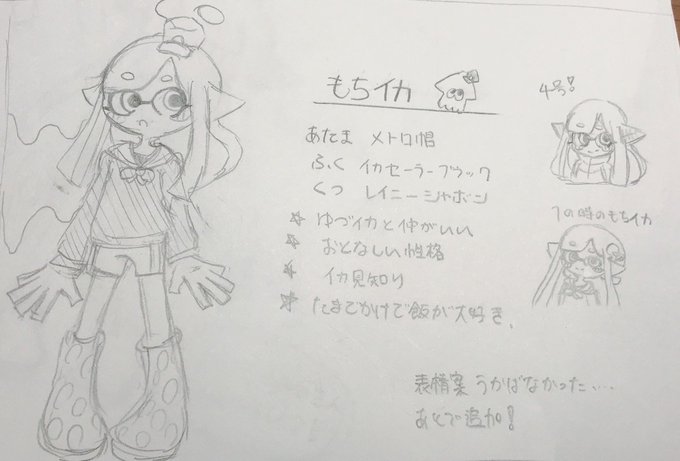 もちイカ
あたま メトロ帽
ふく イカセーラーブラック
くつ レイニーシャボン
☆ ゆづイカと仲がいい
☆ おとなしい性格
☆ イカ見知り
☆ たまごかけご飯が大好き、
4号!
1の時のもちイカ
表情案 うかばなかった....
あとで追加!